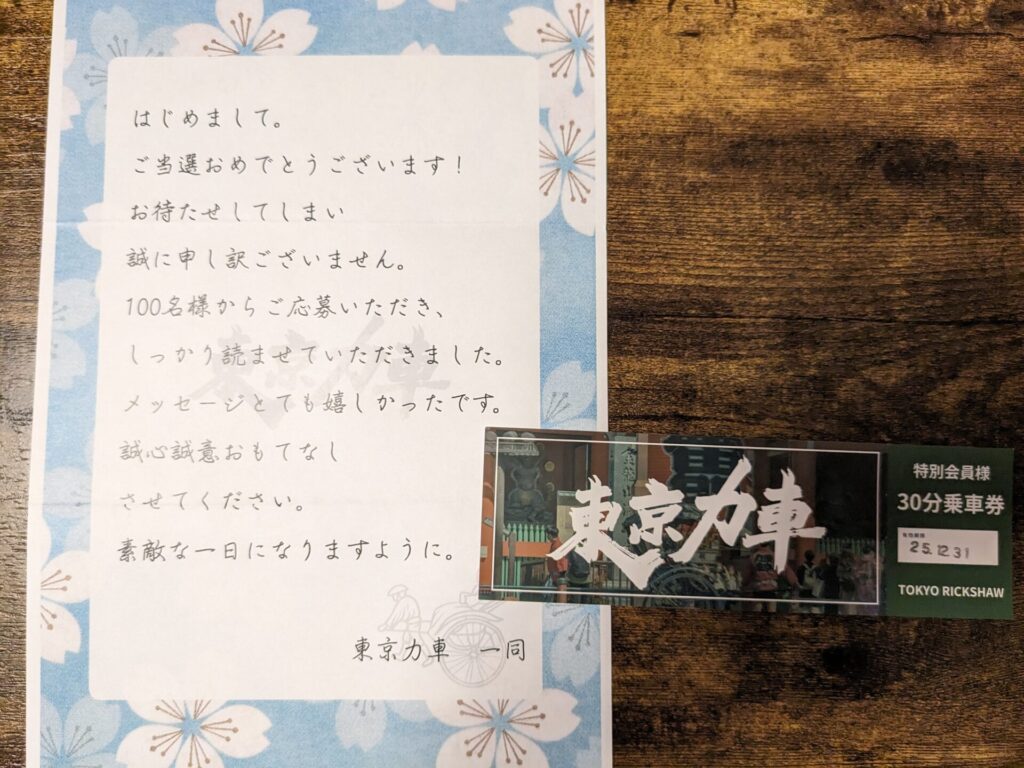 はじめまして。
ご当選おめでとうございます!
お待たせしてしまい
誠に申し訳ございません。
100名様からご応募いただき、
しっかり読ませていただきました。
メッセージとても嬉しかったです。
誠心誠意おもてなし
させてください。
素敵な一日になりますように。
東京力車 一同
東京力車
東京力車
特別会員様
30分乗車券
有効期限
25.12.31
TOKYO RICKSHAW